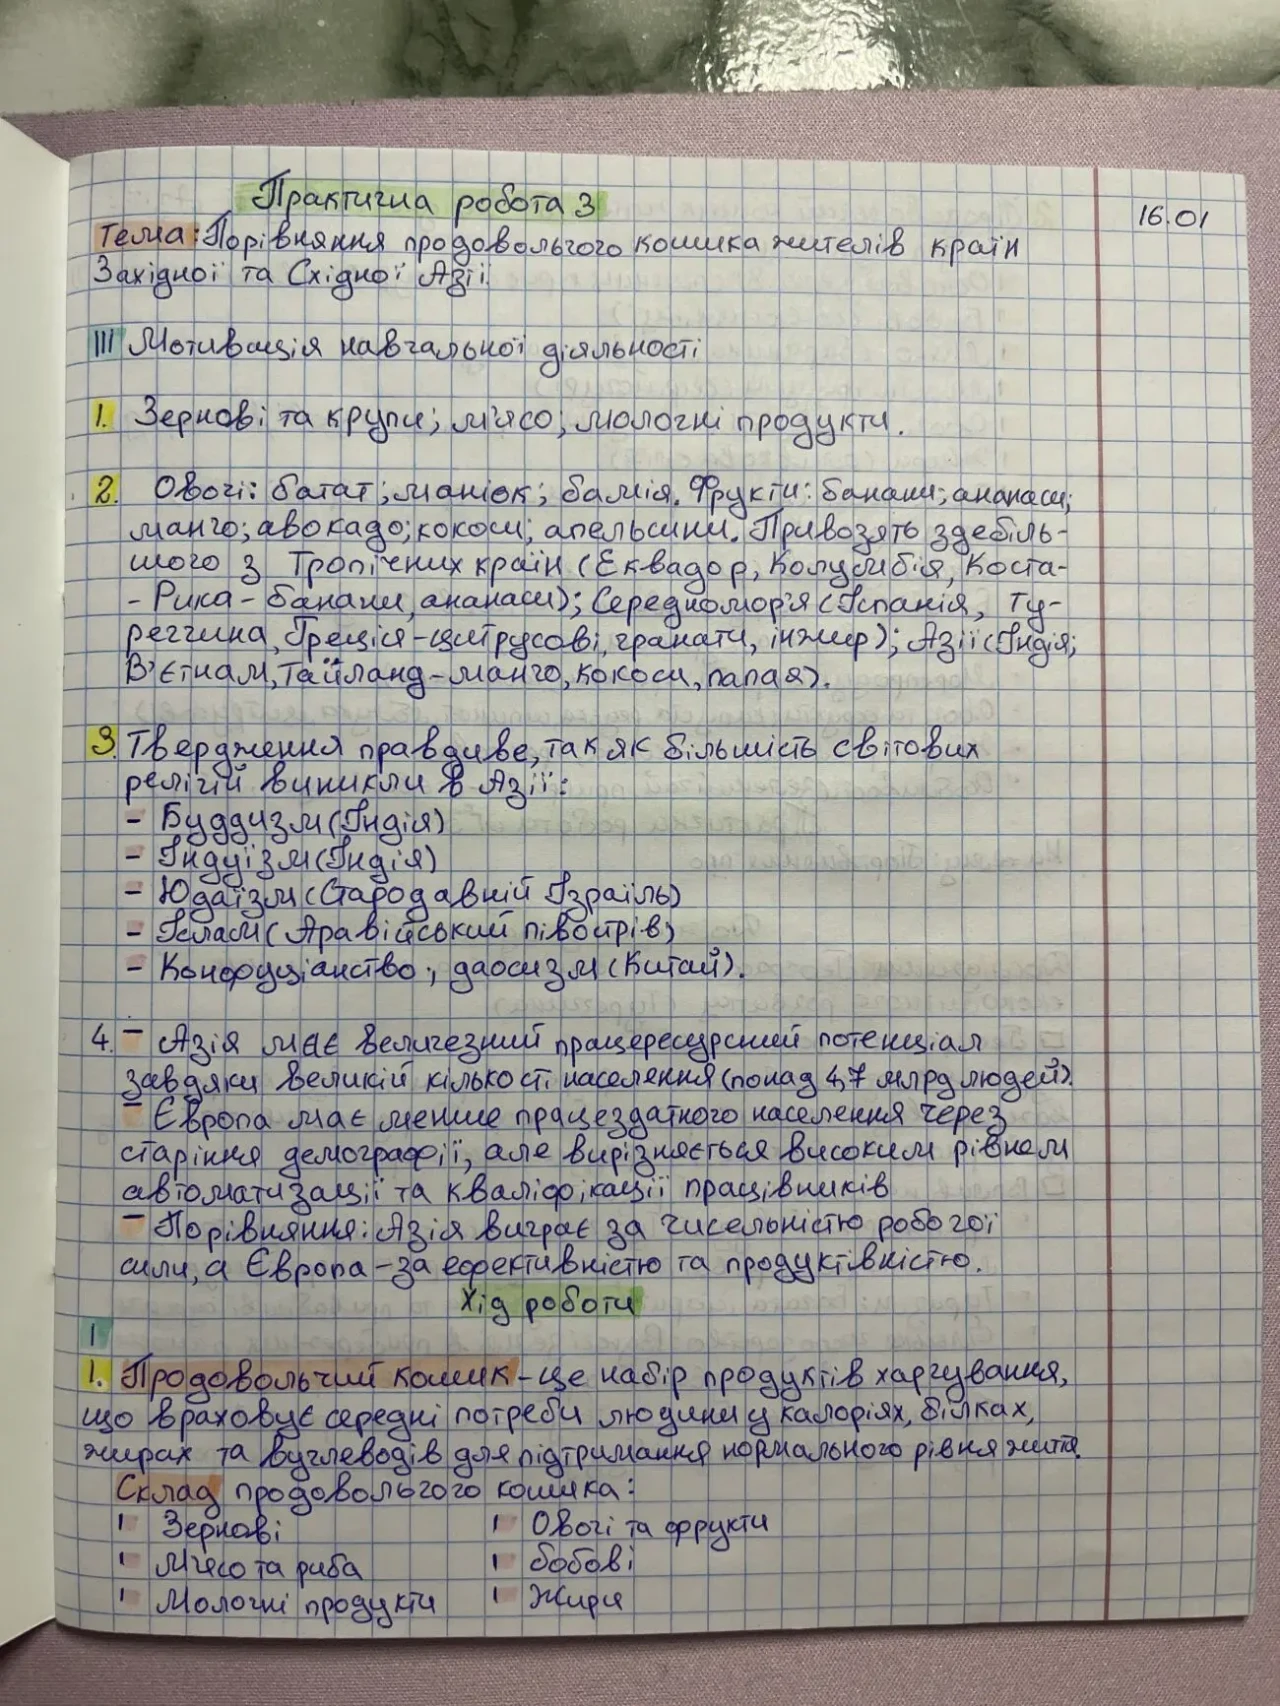 Практична робота 3
16.01
Тема: Порівняння продовольчого кошика жителів країн
Західної та Східної Азії.
III Мотивація навчальної діяльності
1. Зернові та крупи; м'ясо; молочні продукти.
2. Овочі: батат; маніок; бамія. Фрукти: банани; ананаси;
манго; авокадо; кокоси; апельсини. Привозять здебіль-
шого з Тропічних країн (Еквадор, Колумбія, Коста-
-Рика - банани, ананаси); Середномор'я (Іспанія, Ту-
реччина, Греція - цитрусові, гранати, інжир); Азії (Індія;
В'єтнам, Таїланд - манго, кокоси, папая).
3. Твердження правдиве, так як більшість світових
релігій виникли в Азії:
- Буддизм (Індія)
- Індуїзм (Індія)
- Юдаїзм (Стародавній Ізраїль)
- Іслам (Аравійський півострів)
- Конфуціанство, даосизм (Китай).
4. - Азія має величезний працересурсний потенціал
завдяки великій кількості населення (понад 4,7 млрд людей).
- Європа має менше працездатного населення через
старіння демографії, але вирізняється високим рівнем
автоматизації та кваліфікації працівників
- Порівняння: Азія виграє за чисельністю робочої
сили, а Європа - за ефективністю та продуктівністю.
Хід роботи
I
1. Продовольчий кошик - це набір продуктів харчування,
що враховує середні потреби людини у калоріях, білках,
жирах та вуглеводів для підтримання нормального рівня життя.
Склад продовольчого кошика:
Зернові
Овочі та фрукти
М'ясо та риба
бобові
Молочні продукти
Жири